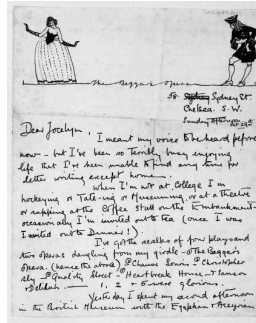 The Beggar's Opera
58. Sydney St.
Chelsea. S.W.
Sunday afternoon
Dear Jocelyn,
I meant my voice to be heard before
now – but I've been so terribly busy enjoying
life that I've been unable to find any time for
letter writing except home.
When I'm not at College I'm
hockeying or Tate-ing or Museuming, or at a theatre
or supping at the Coffee Stall on the Embankment –
occasionally I'm invited out to tea (once I was
invited out to Dinner!).
I've got the scalps of four plays and
two operas dangling from my girdle – The Beggar's
Opera (hence the above)
Sly – Quality Street – Heartbreak House – & Samson
& Delilah. 1, 2 & 5 were glorious.
Yesterday I spent my second afternoon
in the British Museum with the Egyptian & Assyrian